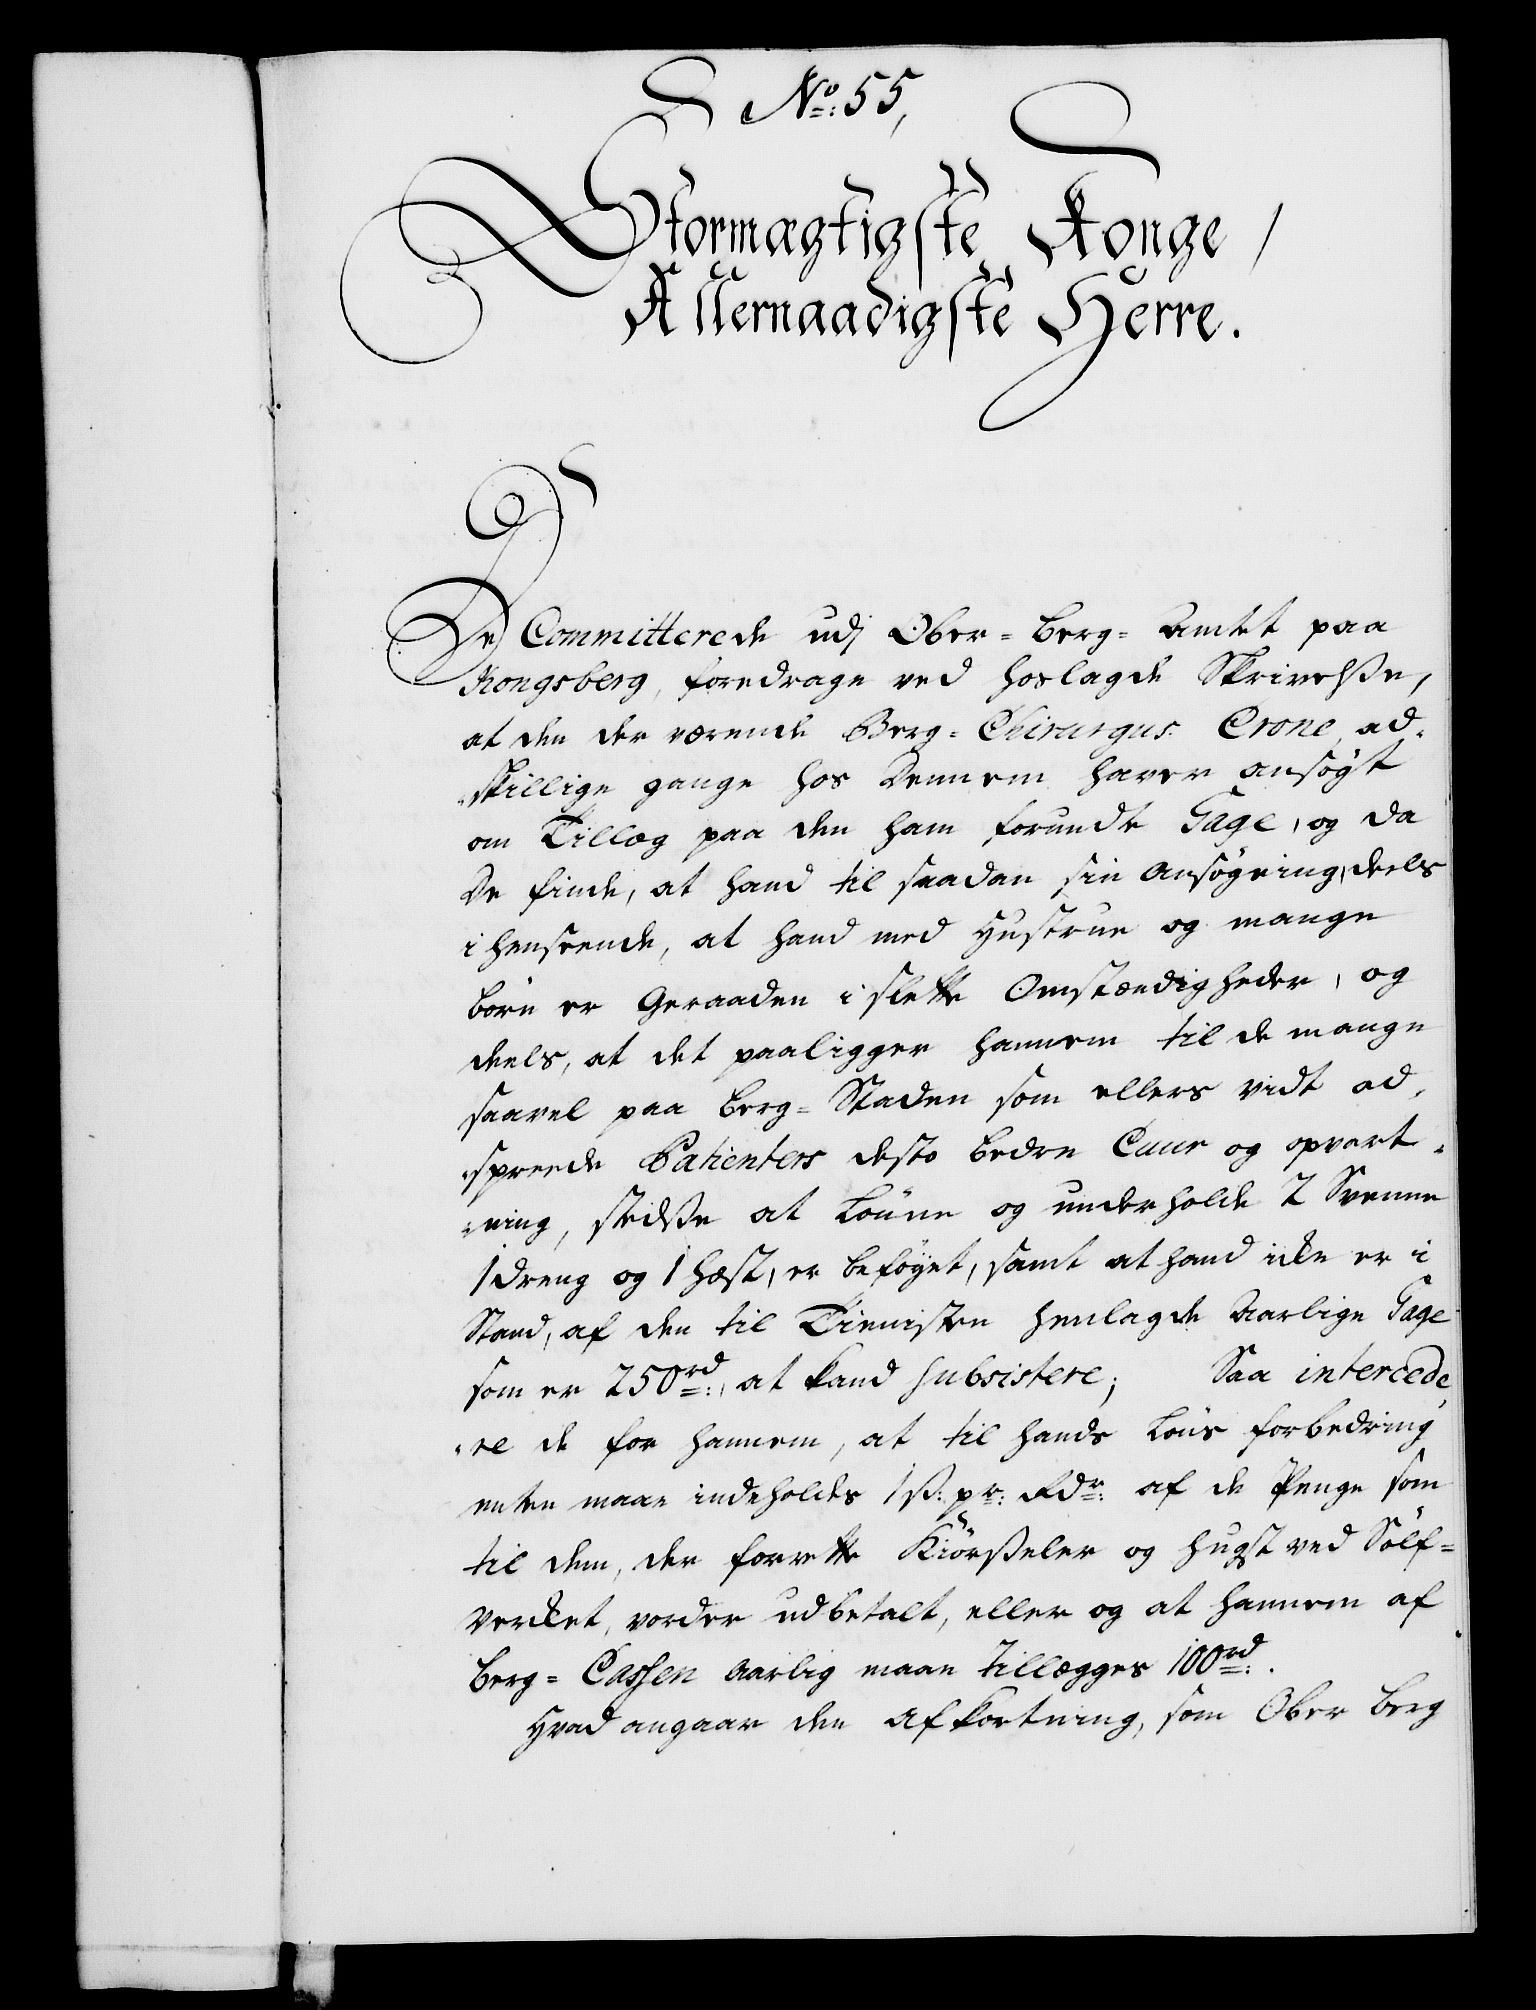 No: 55,
Stormægtigste Konge /
Allernaadigste Herre.
De Committerede udj Ober-Berg-Amtet paa
Kongsberg, foredrage ved hoslagde Skrivelsse,
at den der værende Berg-Chirurgus Crone, ad-
-skillige gange hos Dennem haver ansøgt
om Tillæg paa den ham forundte Gage, og da
De finde, at hand til saadan sin Ansøgning, deels
i henseende, at hand med Hustrue og mange
børn er Geraaden i slette Omstændigheder, og
deels, at det paaligger hannem til de mange
saavel paa Berg-Staden som ellers vidt ad-
-spreede Patienters desto bedre Cuur og opvart-
-ning, stedsse at lønne og underholde 2 Svenne
1 dreng og 1 Hæst, er beføyet, samt at hand icke er i
Stand, af den til Tienisten henlagde Aarlige Gage
som er 250 rd:, at kand subsistere; Saa intercede
-re de for hannem, at til hands Løns forbedring
enten maae indeholdes 1 ß: pr: Rdr: af de Penge som
til dem, der forrette Kiørsseler og hugst ved Sølf-
Verket, vorder udbetalt, eller og at hannem af
Berg-Cassen Aarlig maae tillægges 100 rd:.
Hvad angaar den Afkortning, som Ober Berg